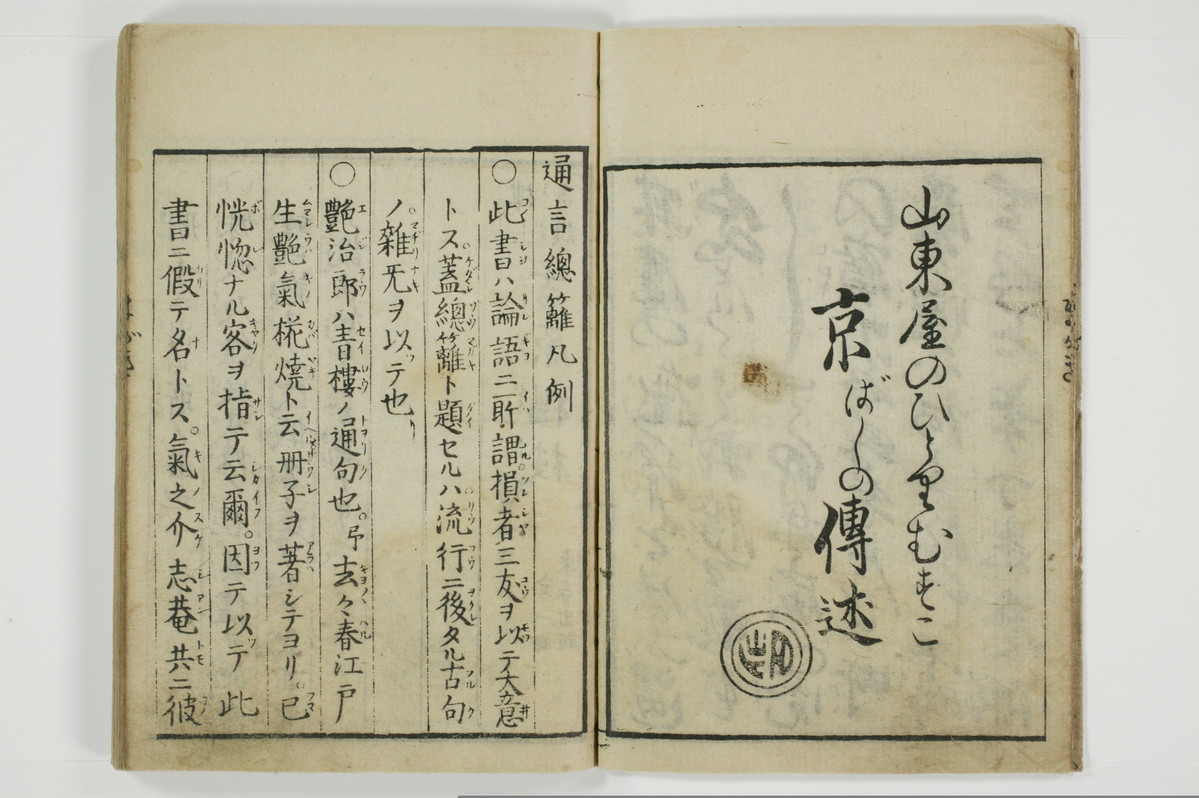 山東屋のひとりむすこ
京ばしの傳述
通言總籬凡例
○此書ハ論語ニ所謂損者三友ヲ以テ大意
トス蓋總籬ト題セルハ流行ニ後タル古句
ノ雑无ヲ以テ也
○艶治郎ハ青樓ノ通句也。予去々春江戸
生艶氣椛焼ト云冊子ヲ著シテヨリ。已
恍惚ナル客ヲ指テ云爾。因テ以テ此
書ニ假テ名トス。氣之介志菴共ニ彼